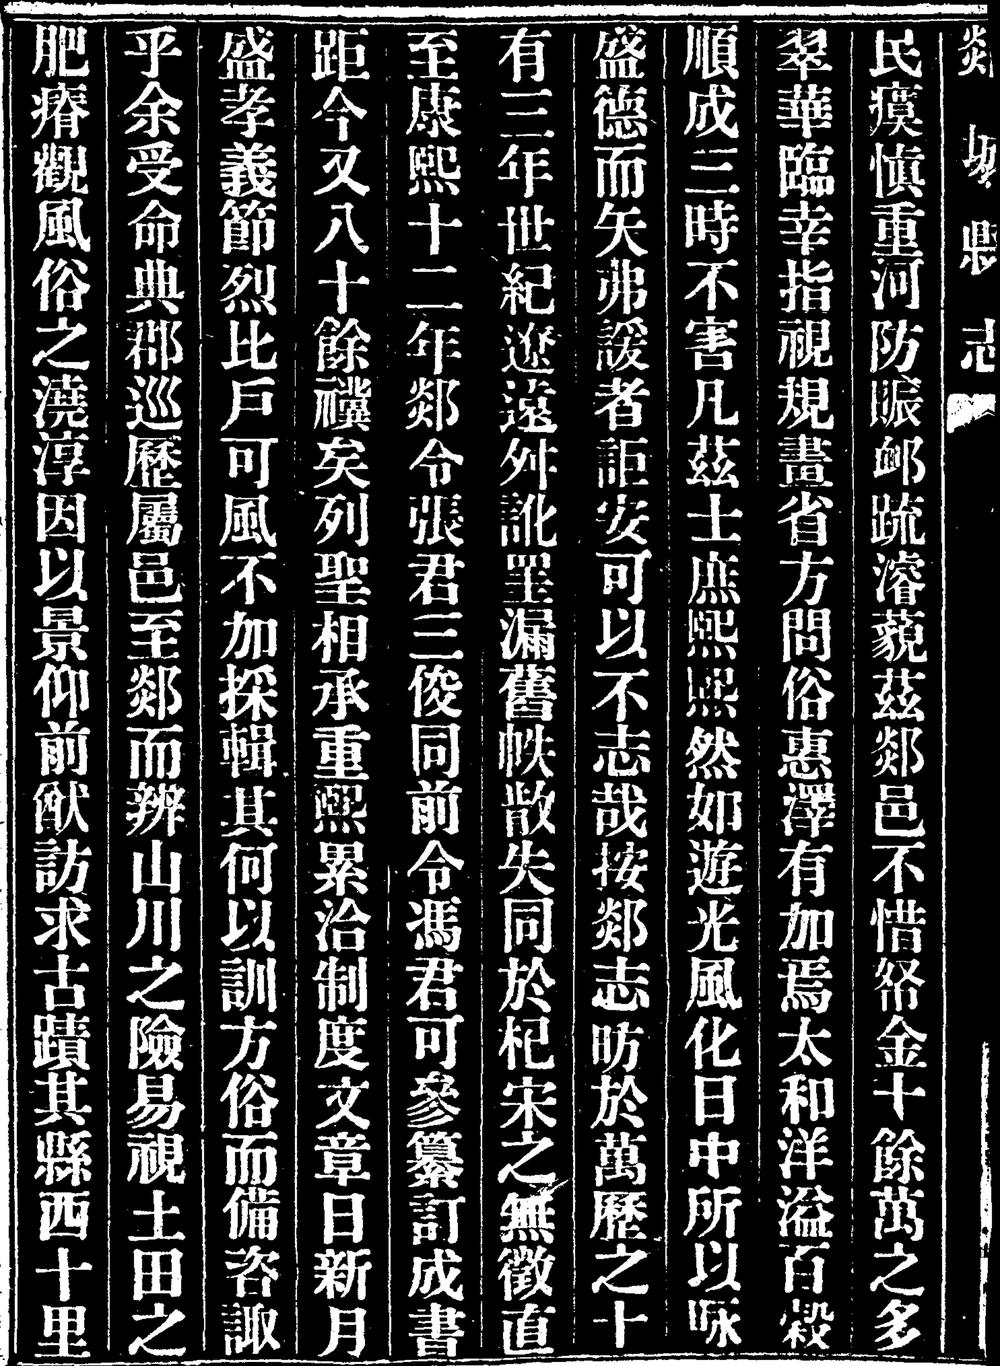 郯城縣志
民瘼慎重河防賑卹疏濬藐茲郯邑不惜帑金十餘萬之多
翠華臨幸指視規畫省方問俗惠澤有加焉太和洋溢百穀
順成三時不害凡茲士庶熙熙然如遊光風化日中所以咏
盛德而矢弗諼者詎安可以不志哉按郯志昉於萬歷之十
有三年世紀遼遠舛訛罣漏舊帙散失同於杞宋之無徵直
至康熙十二年郯令張君三俊同前令馮君可參纂訂成書
距今又八十餘禩矣列聖相承重熙累洽制度文章日新月
盛孝義節烈比戶可風不加採輯其何以訓方俗而備咨諏
乎余受命典郡巡歷屬邑至郯而辨山川之險易視土田之
肥瘠觀風俗之澆淳因以景仰前猷訪求古蹟其縣西十里